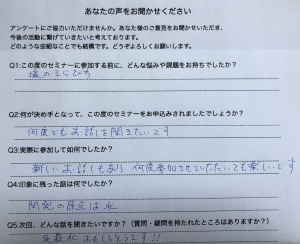 あなたの声をお聞かせください
アンケートにご協力いただけませんか。あなた様のご意見をお聞かせいただき、
今後の活動に繋げていきたいと考えております。
どのような些細なことでも結構です。どうぞよろしくお願いします。
Q1:この度のセミナーに参加する前に、どんな悩みや課題をお持ちでしたか?
塩のえらび方
Q2:何が決め手となって、この度のセミナーをお申込みされましたでしょうか?
何度でもお話しを聞きたいです
Q3:実際に参加して如何でしたか?
新しいお話しもあり 何度参加させていただいても楽しいです
Q4:印象に残った話は何でしたか?
開発の原点は水
Q5:次回、どんな話を聞きたいですか?(質問・疑問を持たれたところはありますか?)
おもしろそうです!!